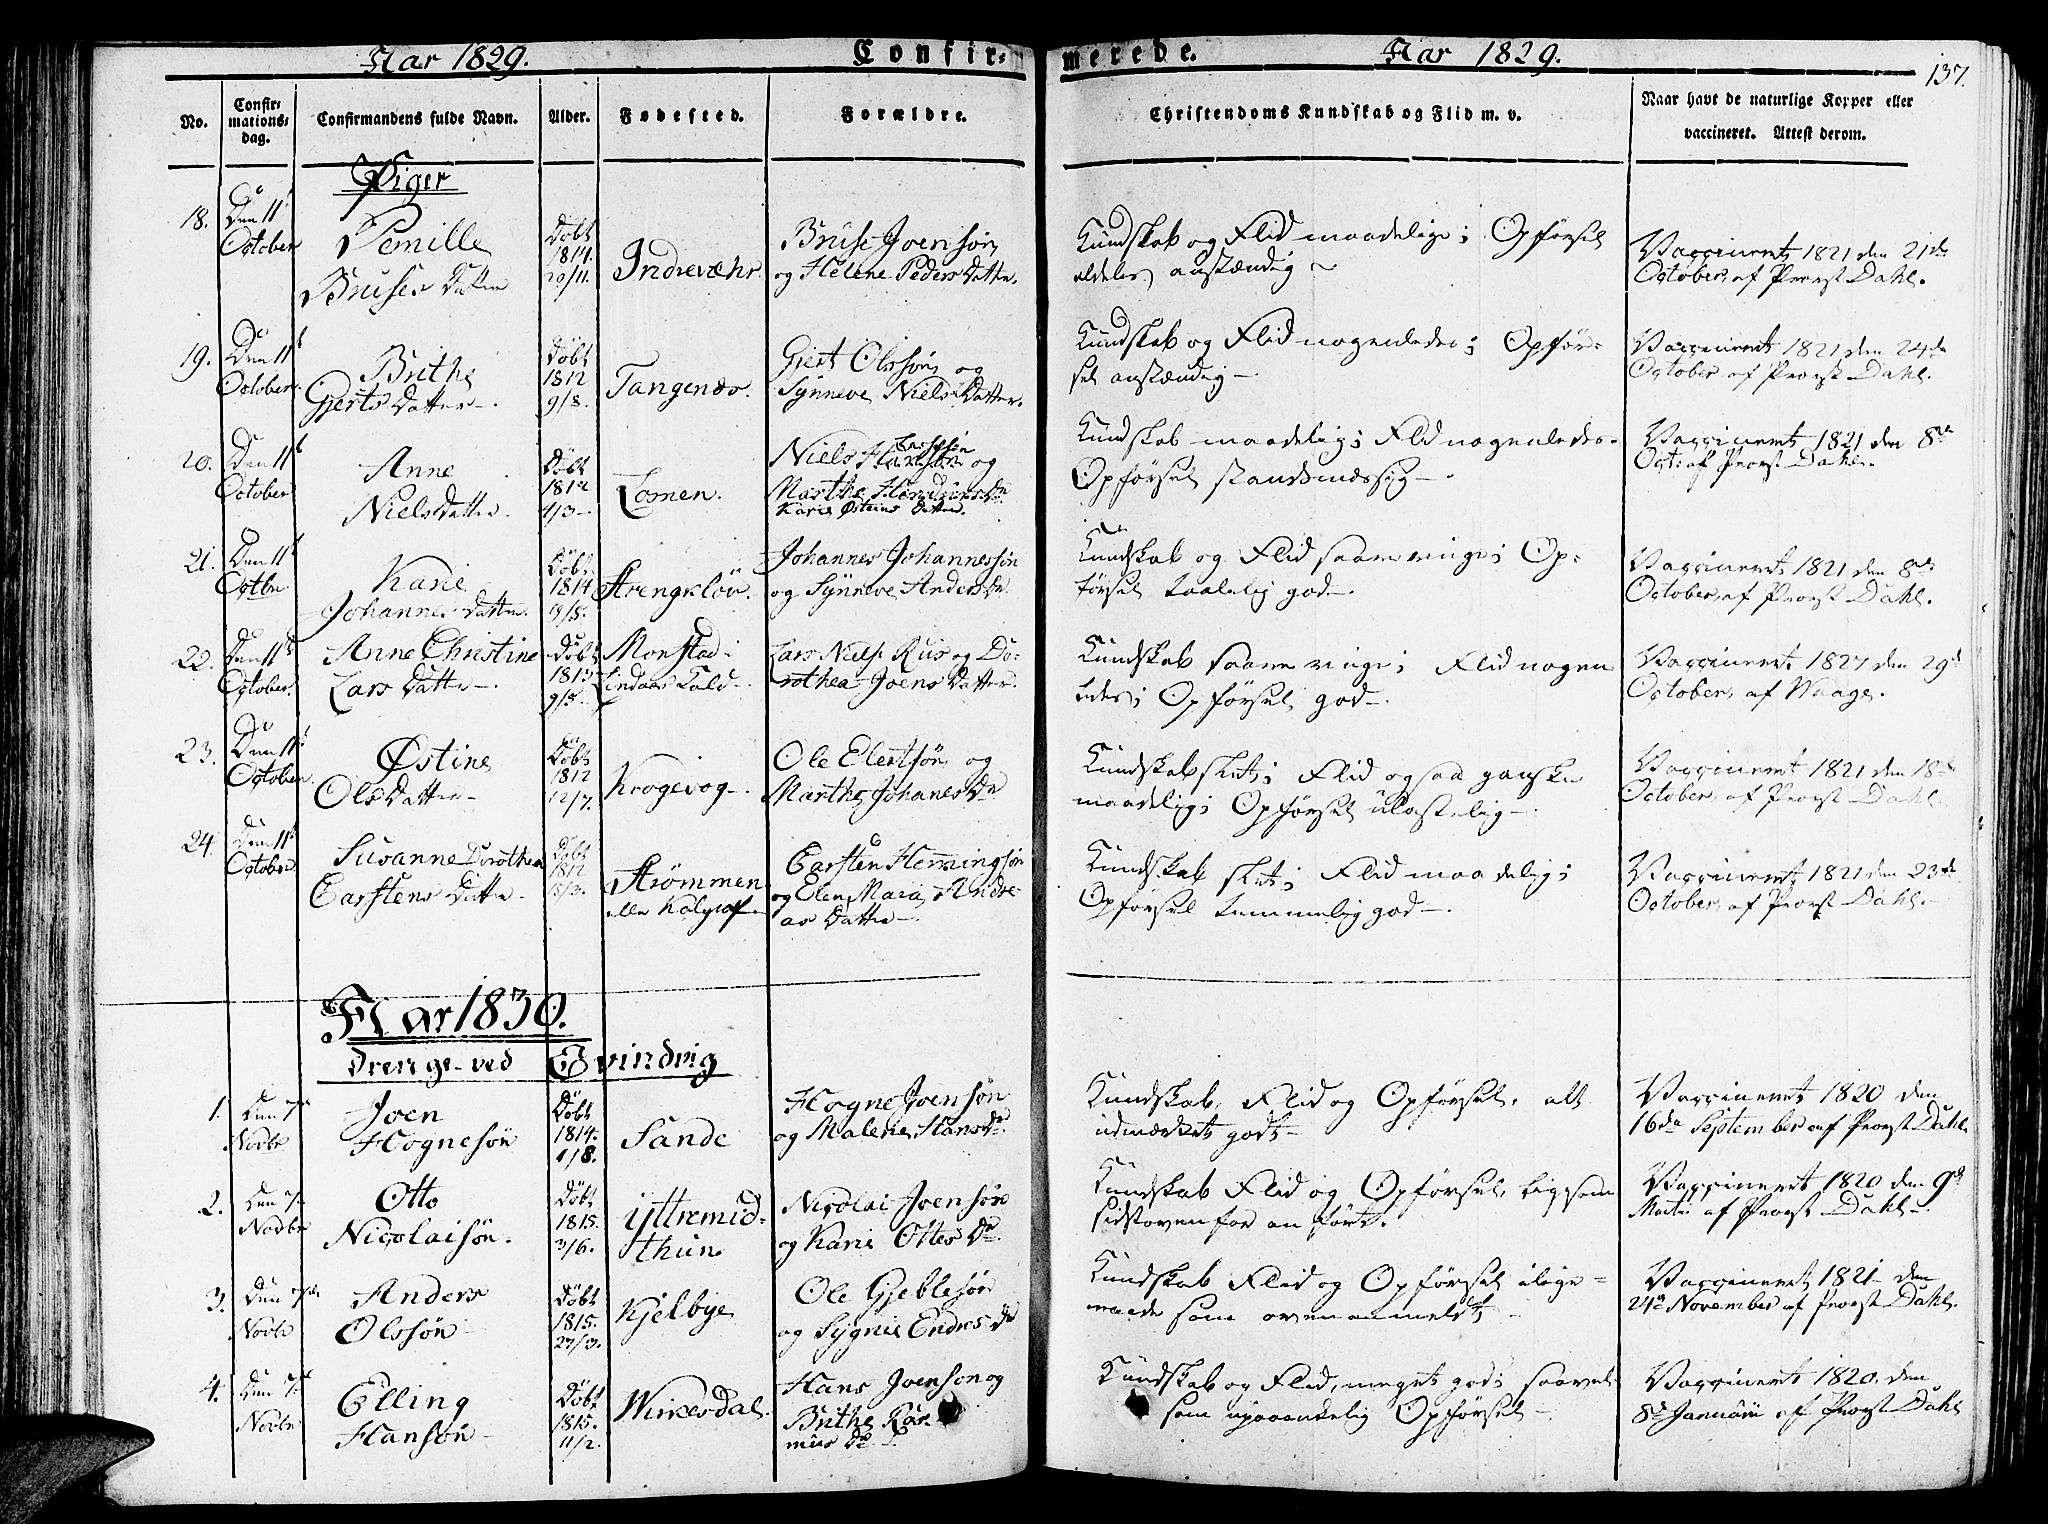 Aar 1829. Confirmerede. Aar 1829.
137.
No.
Confirmationsdag.
Confirmandens fulde Navn.
Alder.
Fødested.
Forældre.
Christendoms Kundskab og Flid m. v.
Naar havt de naturlige Kopper eller
vaccineret. Attest derom.
Piger
18.
Den 11t
October
Pernille
Bruses Datter
Døbt
1814.
20/11.
Indrevæhr.
Bruse Joensøn
og Helene Peders Datter.
Kundskab og Flid maadelige; Opførsel
aldeles anstændig
Vaccineret 1821 den 21de
October, af Provst Dahl.
19.
Den 11t
October.
Brithe
Gjerts Datter
Døbt
1812
9/8.
Tangenæs.
Gjert Olssøn og
Synneve Niels Datter.
Kundskab og Flid nogenledes; Opfør-
sel anstændig
Vaccineret 1821 den 24de
October af Provst Dahl.
20.
Den 11t
October
Anne
Niels Datter.
Døbt
4/3
Losnen.
Niels Hansøn og
Marthe
Karie Østeins Datter.
Kundskab maadelig; Flid nogenledes.
Opførsel standsmæssig
Vaccineret 1821 den 8de
Oct: af Provst Dahl.
21.
Den 11t
Octbr
Karie
Johannes Datter.
Døbt
1814
19/5.
Strengkløv.
Johannes Johannessøn
og Synneve Anders Dr.
Kundskab og Flid saare ringe; Op-
førsel taalelig god.
Vaccineret 1821 den 8de
October, af Provst Dahl.
22.
Den 11t
October.
Anne Christine
Lars Datter
Døbt
1813
9/5.
Monstad
Lindaas Kald
Lars Niels. Riis og Do-
rothea Joens Datter.
Kundskab saare ringe; Flid nogen
ledes; Opførsel god.
Vaccineret 1827 den 29d
October, af Waage.
23.
Den 11t
October.
Østine
Ols Datter
Døbt
1812
12/7.
Krogevog.
Ole Elertsøn og
Marthe Johanes Dr
Kundskab slet; Flid ogsaa ganske
maadelig; Opførsel ulastelig
Vaccineret 1821 den 18de
October, af Provst Dahl.
24.
Den 11t
October
Susanne Dorothea
Carstens Datter
Døbt
1812
Strømmen
eller
Carsten Hemingsøn
og Elen Maria Andre-
as Datter
Kundskab slet; Flid maadelig;
Opførsel temmelig god.
Vaccineret 1821 den 23de
October, af Provst Dahl.
Aar 1830.
Drenge ved Evindvig
1.
Den 7de
Novbr
Joen
Hognesøn
Døbt
1814.
1/8.
Sande
Hogne Joensøn
og Malene Hans Dr.
Kundskab, Flid og Opførsel, alt
udmærket godt
Vaccineret 1820 den
16de September af Provst Dahl.
2.
Den 7de
Novbr
Otto
Nicolaisøn.
Døbt
1815.
3/6.
Yttremid-
thun
Nicolai Joensøn
og Karie Ottes Dr.
Kundskab Flid og Opførsel, ligesom
sidst ovenfor anført.
Vaccineret 1820 den 9d
af Provst Dahl.
3.
Den 7de
Novbr
Anders
Olssøn
Døbt
1815.
27/3.
Kjelbye
Ole Gjeblesøn
og Sygnie Endres Dr
Kundskab Flid og Opførsel i lige-
maade som ovenanmeldt
Vaccineret 1821 den
24de November af Provst Dahl.
4.
Den 7de
Novbr
Elling
Hansøn
Døbt
1815.
11/2.
Wirkesdal.
Hans Joensøn og
Brithe Ras-
mus Dr.
Kundskab og Flid, meget god; saavel
som upaaankelig Opførsel
Vaccineret 1820. den
8de Januari af Provst Dahl